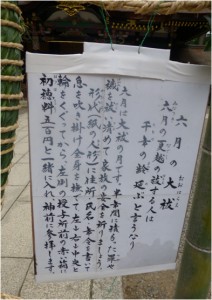 六月の大祓
六月の夏越の祓する人は
千年の齢延ぶと言うなり
六月は大祓の月です。半年間に積もった罪や
穢を祓い清めて家族の安全を祈りましょう。
形代(紙の人形)に住所、氏名、年令を書いて
息を吹き掛け全身を撫で、左、右、中央と
輪をくぐってから、左側の授与所前の赤い箱に
初穂料五百円と一緒に入れ、神前に参拝します。